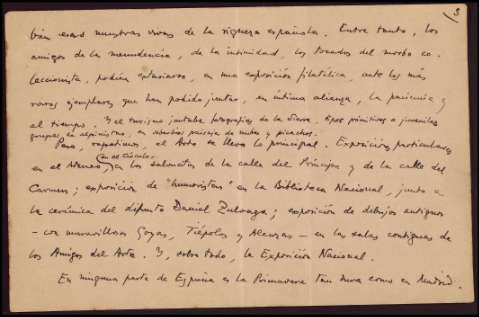 3
bían esas muestras vivas de la riqueza española. Entre tanto, los
amigos de la menudencia, de la intimidad, los tocados del morbo co-
leccionista, podían extasiarse, en una exposición filatélica, ante los más
raros ejemplares que han podido juntar, en íntima alianza, la paciencia y
el tiempo. Y el enseguida fotografías de la Sierra, tipos primitivos o juveniles
grupos de alpinistas, en paisaje de nubes y picachos.
Pero, repetimos, el Arte se lleva lo principal. Exposiciones particulares
en el Ateneo, en el Círculo, en los saloncitos de la calle del Príncipe y de la calle del
Carmen; exposición de "humoristas" en la Biblioteca Nacional, junto a
la cerámica del difunto Daniel Zuloaga; exposición de dibujos antiguos
- con maravillosos Goyas, Tiépolos y Alenzas - en las salas contiguas de
los Amigos del Arte. Y, sobre todo, la Exposición Nacional.
En ninguna parte de España es la Primavera tan nueva como en Madrid.